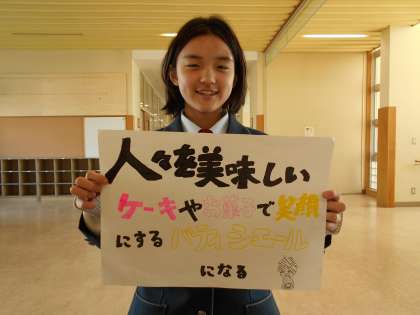 人々を美味しい
ケーキやお菓子で笑顔
にするパティシエール
になる